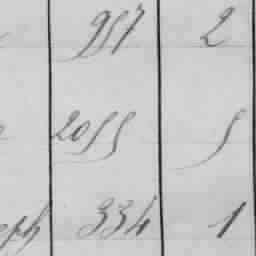 957 2
2055 5
eph 334 1